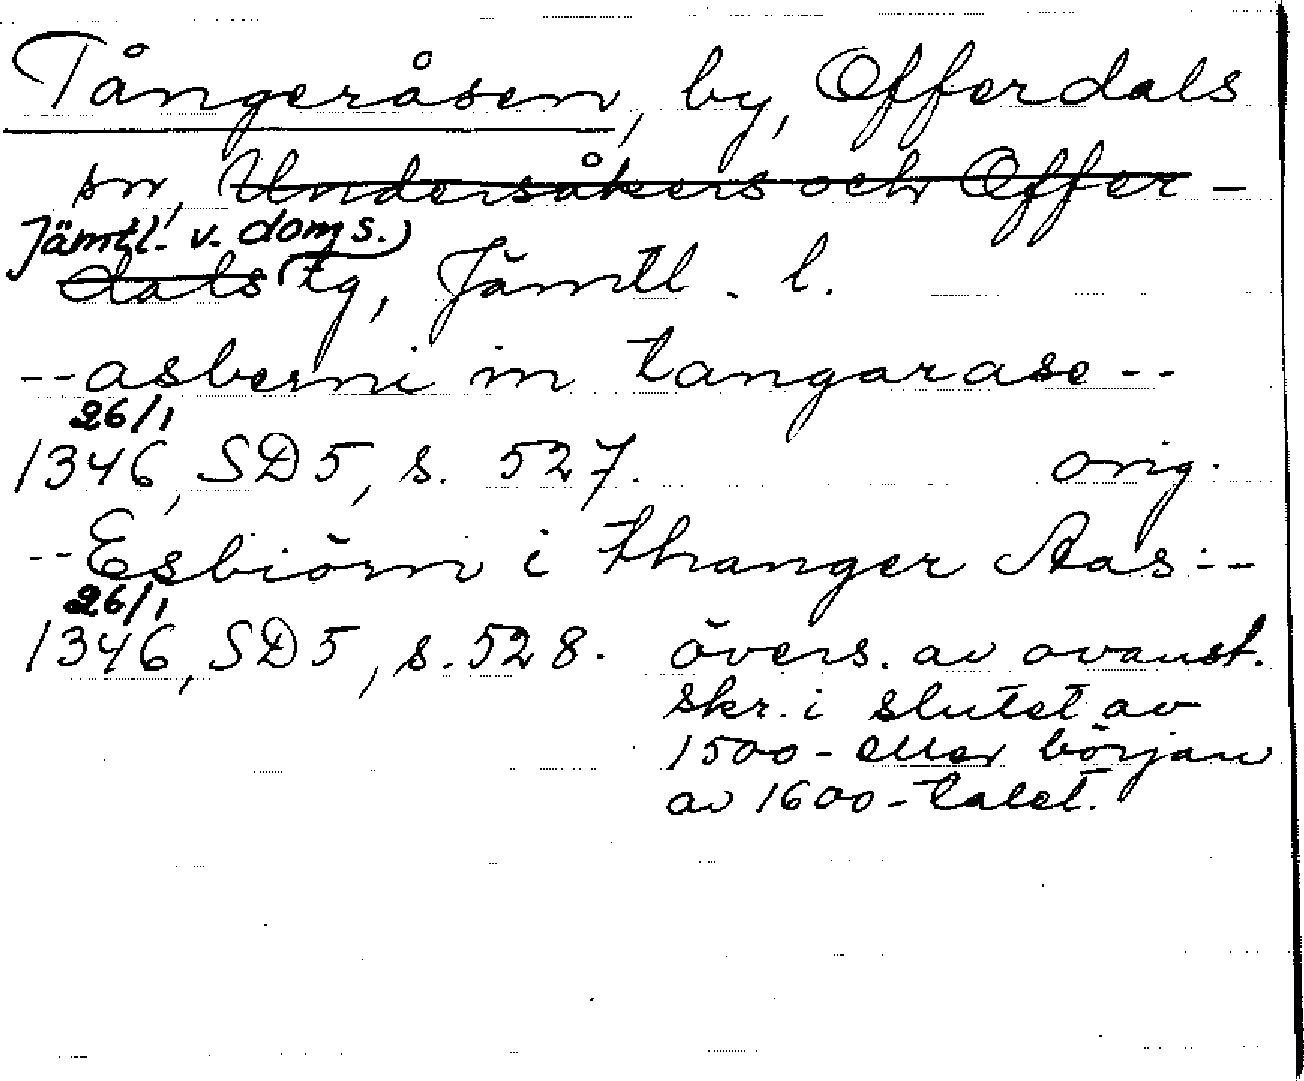 Tångeråsen, by, Offerdals
sn, Undersåkers och Offer-
Jämtl. v. doms.
dals tg, Jämtl. l.
--asberni in tangarase--
26/1
1346, SD5, s. 527. orig.
--Esbiörn i thanger Aas:--
26/1
1346, SD5, s. 528. övers. av ovanst.
skr. i slutet av
1500- eller början
av 1600-talet.